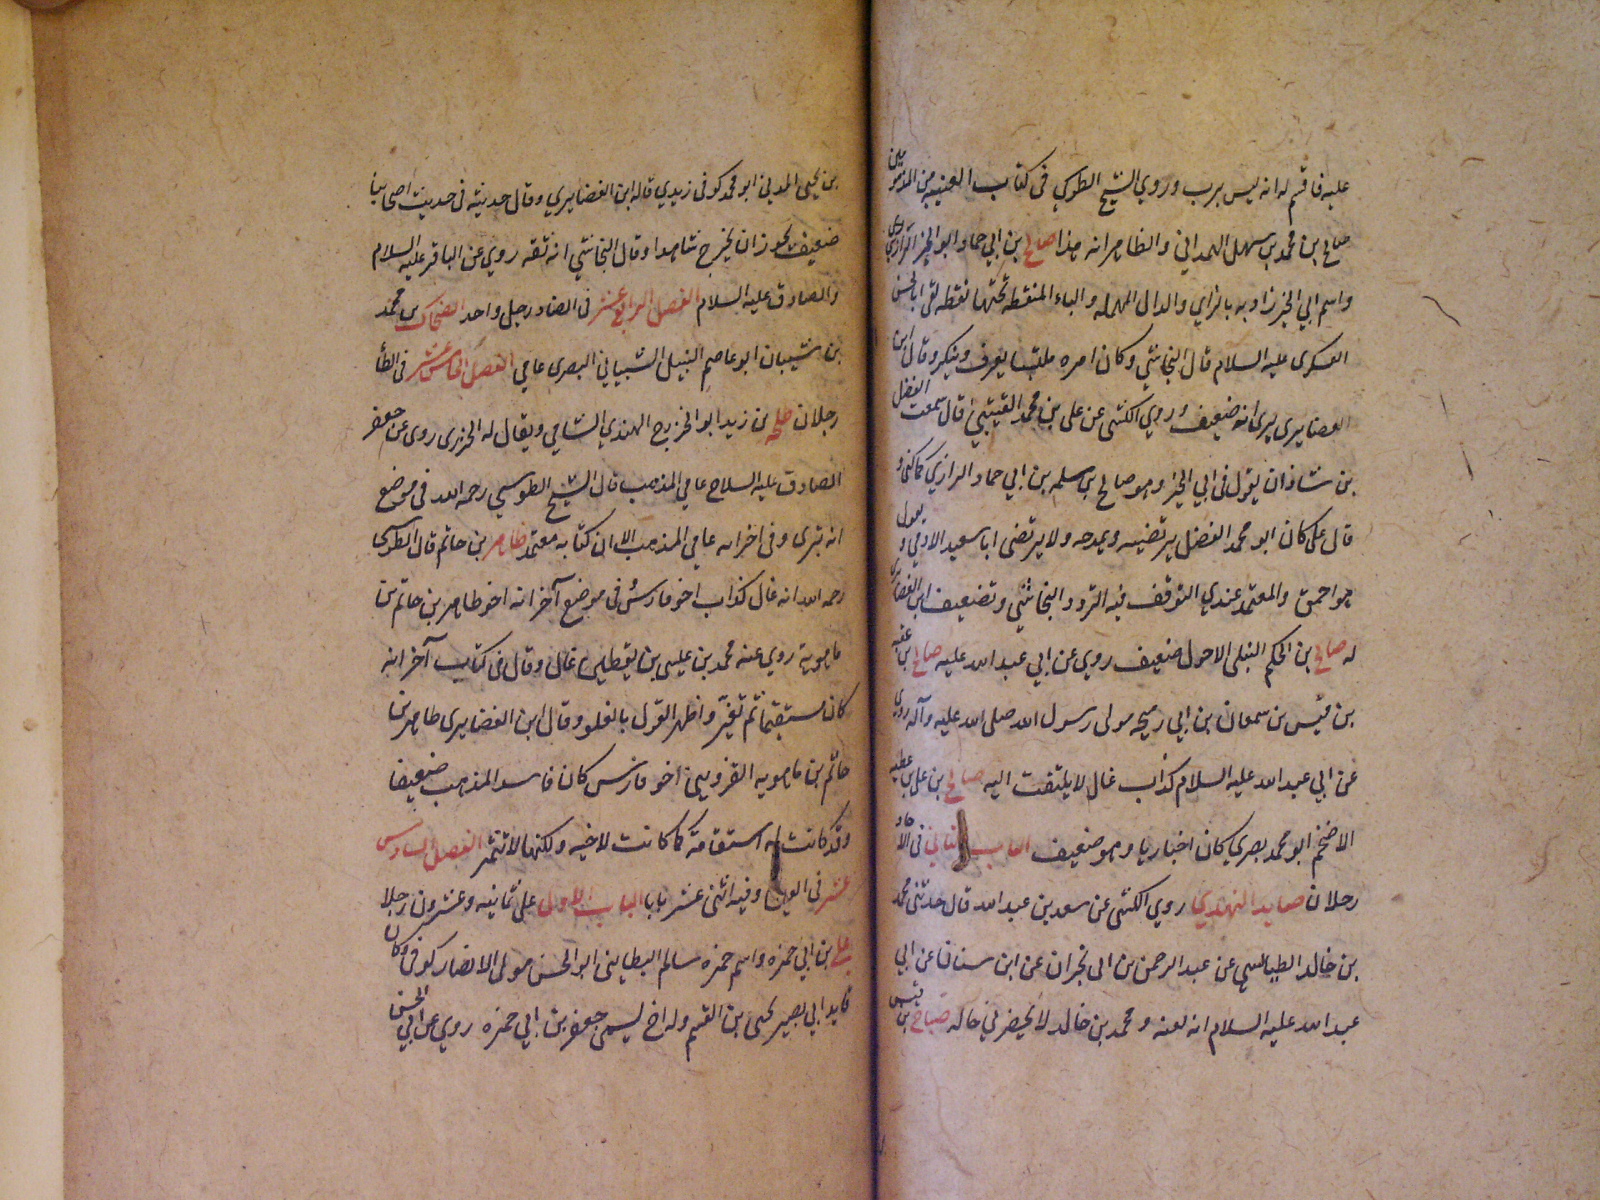 عليه فاقسم له انه ليس برب وروي الشيخ الطوسي في كتاب الغيبه من المذمومين
صالح بن محمد بن سهل الهمداني والظاهر انه هذا صالح بن ابي حماد ابو الخير الرازي
واسم ابي الخير زادبه بالزاي والدال المهمله والباء المنقطه تحتها نقطه لقى ابا الحسن
العسكرى عليه السلام قال النجاشي وكان امره ملتبسا يعرف وينكر وقال ابن
الغضايرى انه ضعيف وروي الكشي عن على بن محمد القتيبي قال سمعت الفضل
بن شاذان يقول في ابي الخير وهو صالح بن سلمه بن ابي حماد الرازي كما كنى و
قال على كان ابو محمد الفضل يرتضيه ويمدحه ولا يرتضى ابا سعيد الادمي ويقول
هو احمق والمعتمد عندي التوقف فيه لتردد النجاشي وتضعيف ابن الغضايرى
له صالح بن الحكم النيلى الاحول ضعيف روي عن ابي عبد الله عليه صالح بن عقبه
بن قيس بن سمعان بن ابي ربيحه مولى رسول الله صلى الله عليه وآله روى
عن ابي عبد الله عليه السلام كذاب غال لا يلتفت اليه صالح بن على بن عطيه
الاضخم ابو محمد بصري كان اخباريا وهو ضعيف الباب الثاني في الاحاد
رجلان صايد النهدي روي الكشي عن سعد بن عبد الله قال حدثني محمد
بن خالد الطيالسي عن عبد الرحمن بن ابي نجران عن ابن سنان عن ابي
عبد الله عليه السلام انه لعنه و محمد بن خالد لا يحضرني حاله صباح بن قيس
بن يحيى المدني ابو محمد كوفي زيدي قاله ابن الغضايري وقال حديثه في حديث اصحابنا
ضعيف يجوز ان يخرج شاهدا وقال النجاشي انه ثقه روي عن الباقر عليه السلام
والصادق عليه السلام الفصل الرابع عشر في الضاد رجل واحد الضحاك بن محمد
بن شيبان ابو عاصم النبيل الشيباني البصرى عامي الفصل الخامس عشر في الطا
رجلان طلحه بن زيد ابو الخزرج النهدي الشامي ويقال له الخزرى روى عن جعفر
الصادق عليه السلام عامي المذهب قال الشيخ الطوسي رحمه الله في موضع
انه بترى وفي اخر انه عامي المذهب الا ان كتابه معتمد طاهر بن حاتم قال الطوسى
رحمه الله انه غال كذاب اخو فارس في موضع آخر انه اخو طاهر بن حاتم بن
ماهويه روي عنه محمد بن عيسى بن يقطين غال وقال في كتاب آخر انه
كان مستقيما ثم تغير واظهر القول بالغلو وقال ابن الغضايرى طاهر بن
حاتم بن ماهويه القزويني اخو فارس كان فاسد المذهب ضعيفا
وقد كانت له استقامة كما كانت لاخيه ولكنها لا تثمر الفصل السادس
عشر في العين وفيه اثني عشر بابا الباب الاول على ثمانيه وعشرون رجلا
على بن ابي حمزه واسم حمزه سالم البطايني ابو الحسن مولى الانصار كوفي وكان
قايد ابي بصير يحيى بن القسم وله اخ يسمى جعفر بن ابي حمزه روي عن ابي الحسن